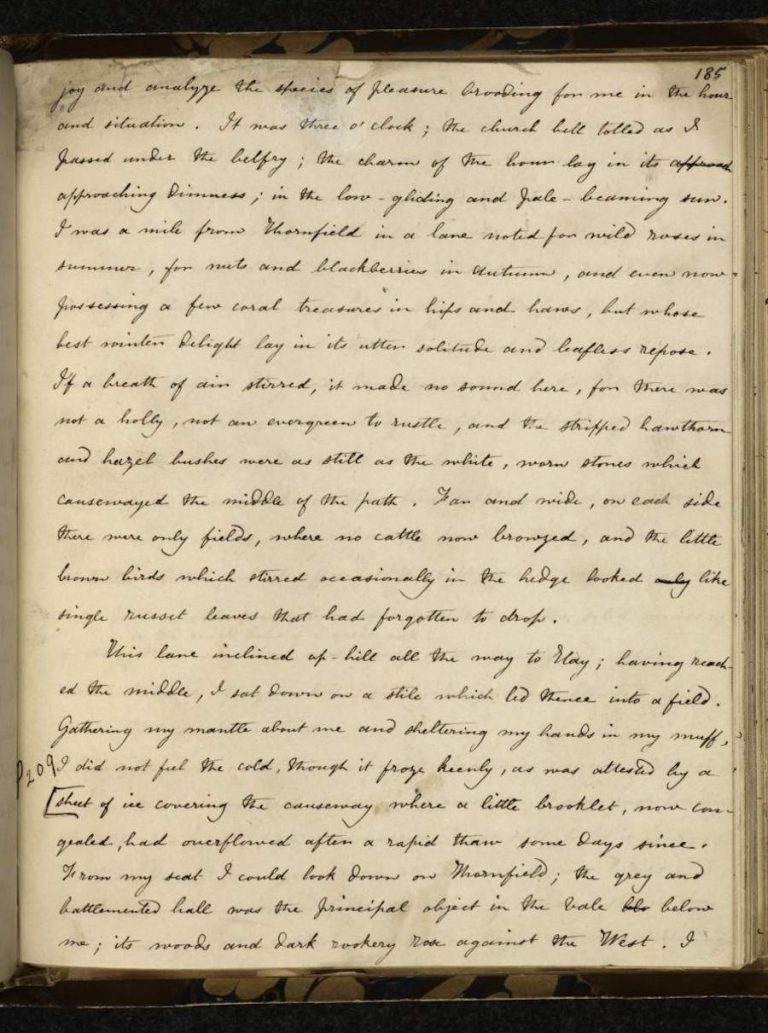 185
joy and analyze the species of pleasure brooding for me in the hour
and situation. It was three o'clock; the church bell tolled as I
passed under the belfry; the charm of the hour lay in its approach
approaching dimness; in the low-gliding and pale-beaming sun.
I was a mile from Thornfield in a lane noted for wild roses in
summer, for nuts and blackberries in autumn, and even now
possessing a few coral treasures in hips and haws, but whose
best winter delight lay in its utter solitude and leafless repose.
If a breath of air stirred, it made no sound here, for there was
not a holly, not an evergreen to rustle, and the stripped hawthorn
and hazel bushes were as still as the white, worn stones which
causewayed the middle of the path. Far and wide, on each side
there were only fields, where no cattle now browzed, and the little
brown birds which stirred occasionally in the hedge looked only like
single russet leaves that had forgotten to drop.
This lane inclined up-hill all the way to Hay; having reach-
ed the middle, I sat down on a stile which led thence into a field.
Gathering my mantle about me and sheltering my hands in my muff,
P209 I did not feel the cold, though it froze keenly, as was attested by a
[sheet of ice covering the causeway where a little brooklet, now con-
gealed, had overflowed after a rapid thaw some days since.
From my seat I could look down on Thornfield; the grey and
battlemented hall was the principal object in the vale below
me; its woods and dark rookery rose against the West. I